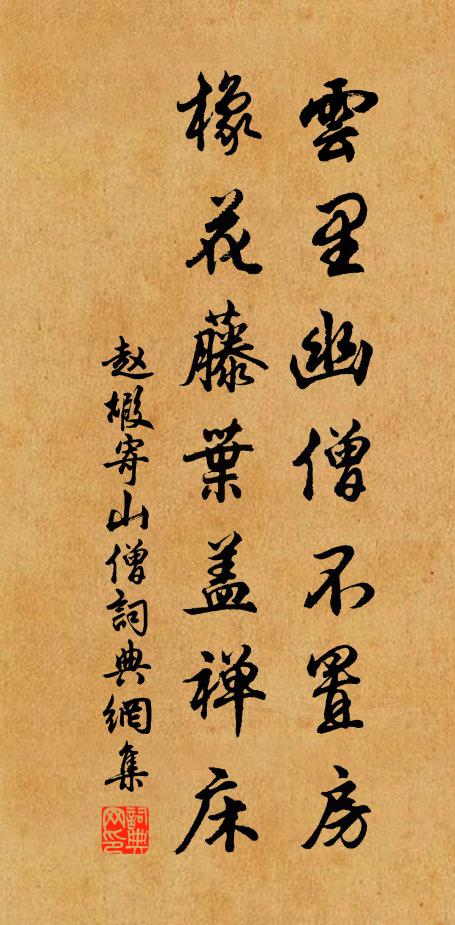 雲里幽僧不置房
橡花藤葉盖禅床
赵嘏寄山僧詞典網集
詞典网印